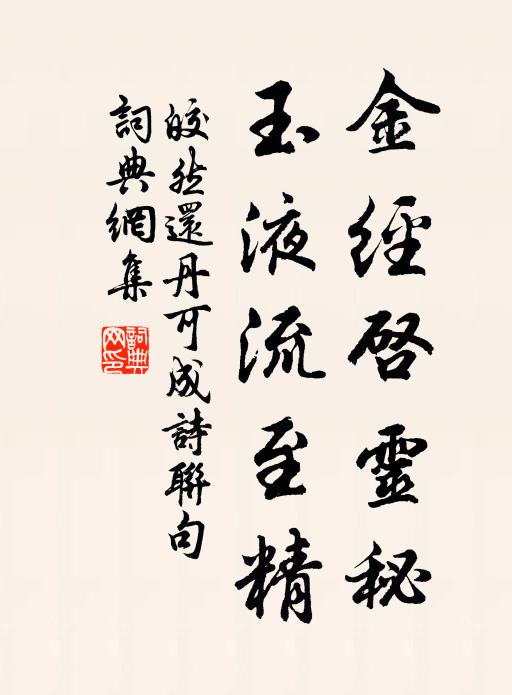 金經啓靈秘
玉液流至精
皎然還丹可成詩聯句
詞典網集
詞典网印